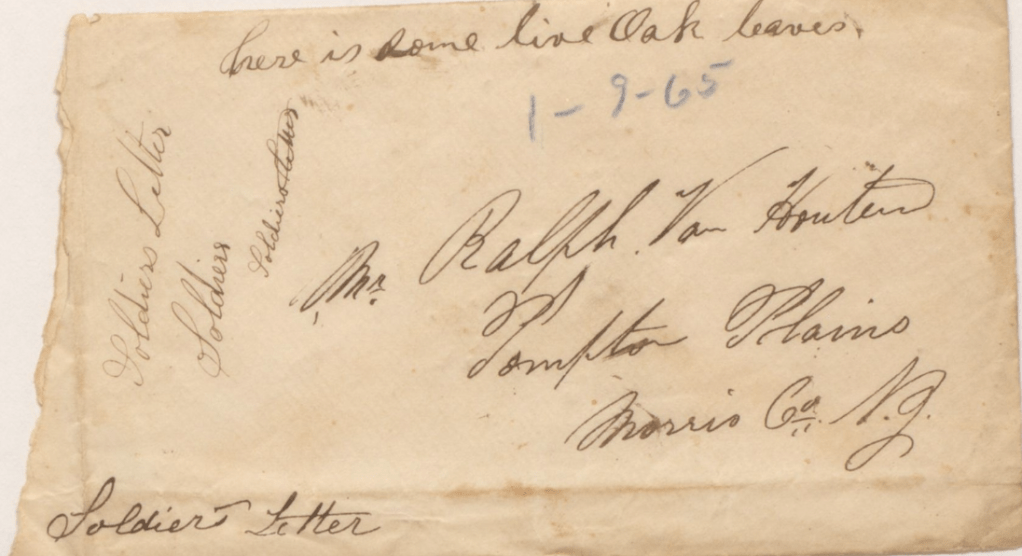 here is some live Oak leaves.
1-9-65
Soldiers Letter
Soldiers
Soldiers Letter
Mr. Ralph. Van Houten
Pompton Plains
Morris Co. N.J.
Soldiers Letter